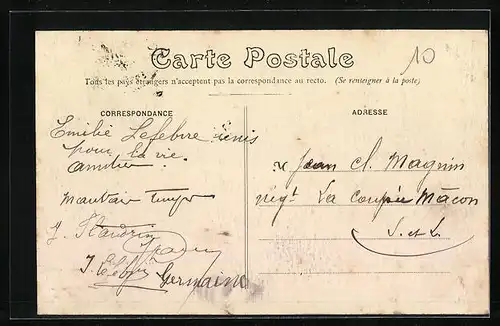 10
Carte Postale
Tous les pays étrangers n'acceptent pas la correspondance au recto. (Se renseigner à la poste)
CORRESPONDANCE
Emilie Lefebvre unis
pour la vie.
Mauvais temps
Germaine
ADRESSE
M Jean Cl. Magnin
négt La Coupée Mâcon
S. et L.